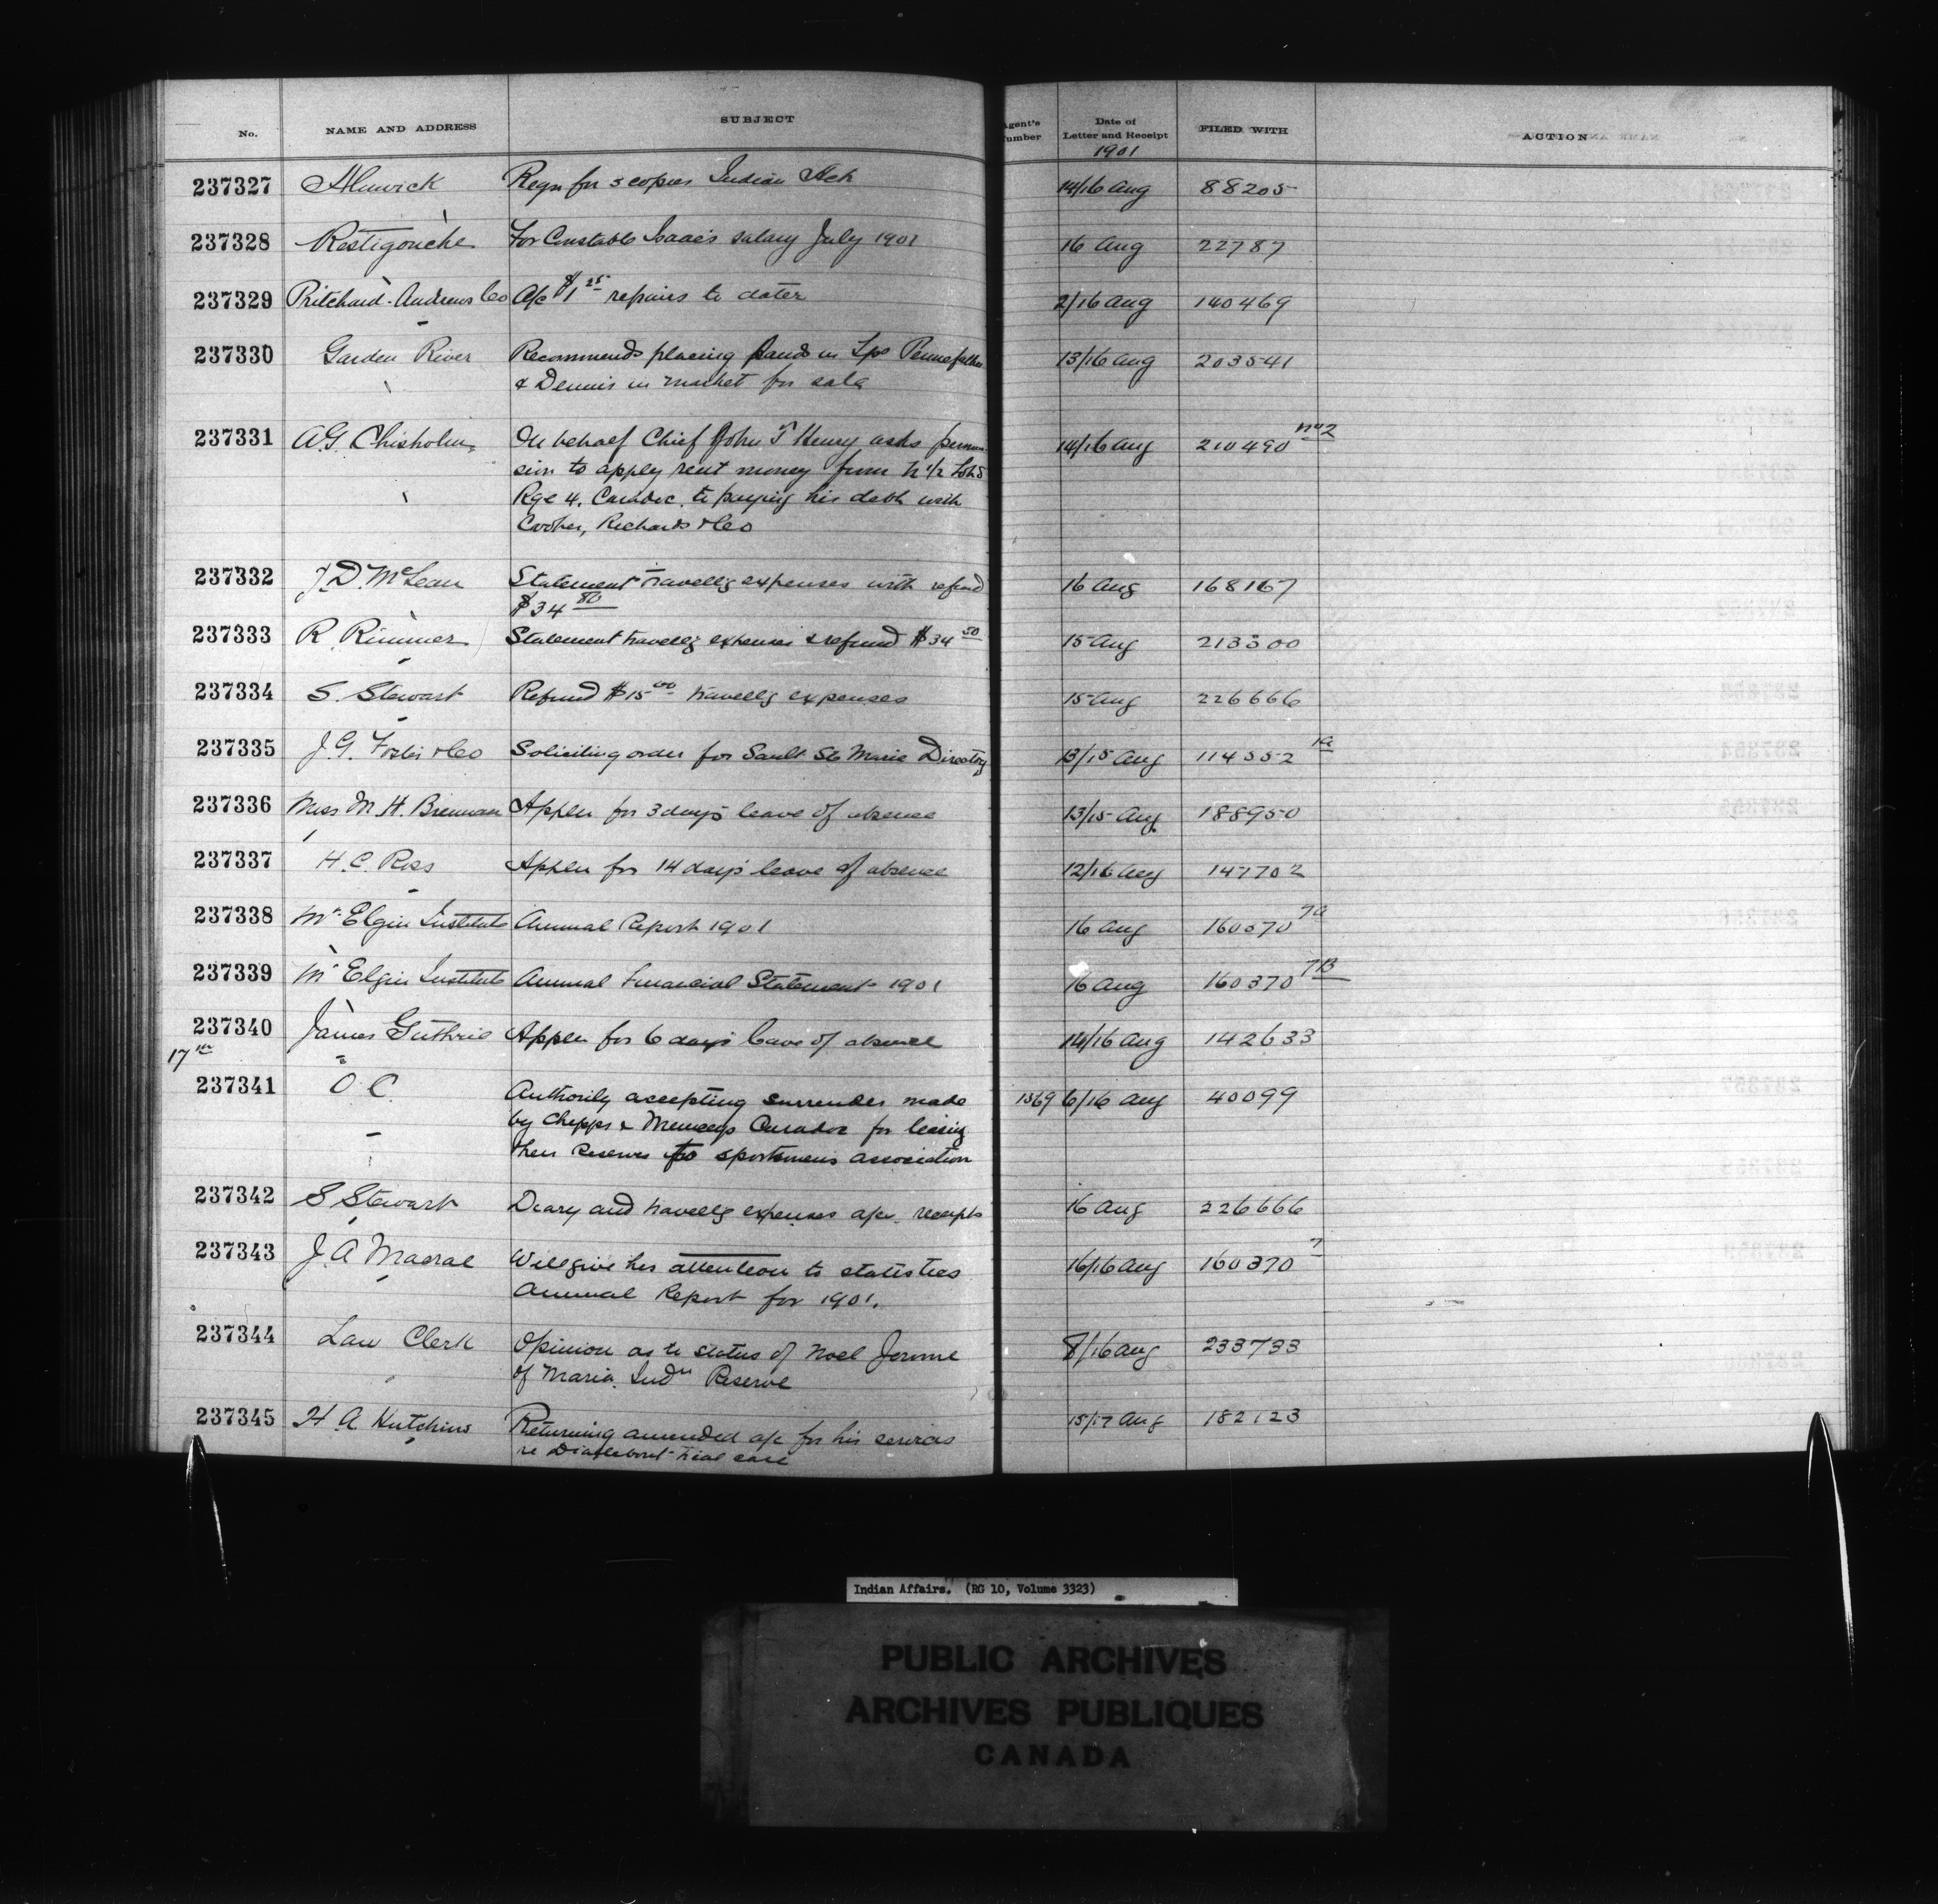 No. NAME AND ADDRESS SUBJECT Agent's Number Date of Letter and Receipt FILED WITH ACTION
1901
237327 Alnwick Reqn for 5 copies Indian Act 14/16 Aug 88205
237328 Restigouche For Constable Isaac's salary July 1901 16 Aug 22787
237329 Pritchard-Andrews Co A/c $1 25 repairs to dater 2/16 Aug 140469
237330 Garden River Recommends placing lands in Tps Pennefather 13/16 Aug 203541
& Dennis in market for sale
237331 A.G. Chisholm On behalf Chief John T Henry asks permis- 14/16 Aug 210490 No 2
sion to apply rent money from N 1/2 Lot
Rge 4, Caradoc, to paying his debt with
Cooper, Richards & Co
237332 J.D. McLean Statement travellg expenses with refund 16 Aug 168167
$34 80
237333 R. Rimmer Statement travellg expenses & refund $34 50 15 Aug 213300
237334 S. Stewart Refund $15 00 travellg expenses 15 Aug 226666
237335 J.G. Foster & Co Soliciting order for Sault Ste Marie Directory 13/15 Aug 114552
237336 Miss M.H. Brennan Appln for 3 days leave of absence 13/15 Aug 188950
237337 H.C. Ross Appln for 14 days leave of absence 12/16 Aug 147702
237338 Mt Elgin Institute Annual Report 1901 16 Aug 160370 7A
237339 Mt Elgin Institute Annual Financial Statement 1901 16 Aug 160370 7B
237340 James Guthrie Appln for 6 days leave of absence 14/16 Aug 142633
17th
237341 O.C. Authority accepting surrender made 1369 6/16 Aug 40099
by Chipps & Munceys Caradoc for leasing
their Reserves to sportsmens association
237342 S Stewart Diary and travellg expenses a/c. receipts 16 Aug 226666
237343 J.A Macrae Will give his attention to statistics 16/16 Aug 160370 7
Annual Report for 1901.
237344 Law Clerk Opinion as to status of Noel Jerome 8/16 Aug 233733
of Maria Indn Reserve
237345 H.A Hutchins Returning amended a/c for his services 15/17 Aug 182123
re Diabo trial case
Indian Affairs. (RG 10, Volume 3323)
PUBLIC ARCHIVES
ARCHIVES PUBLIQUES
CANADA